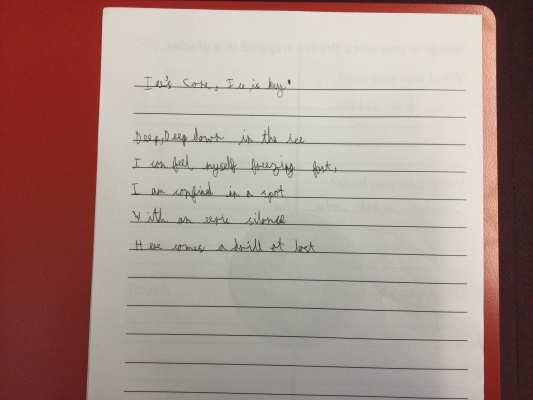 Ice's Core, Ice is key"
Deep, Deep down in the ice
I can feel myself freezing fast,
I am confined in a spot
With an eerie silence
Here comes a drill at last